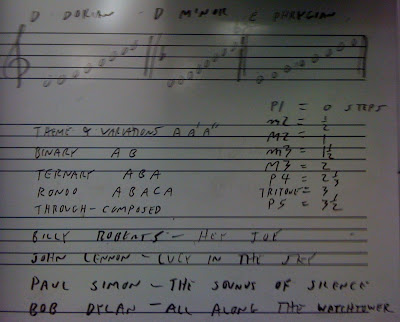 D DORIAN D MINOR E PHRYGIAN
P1 = 0 STEPS
m2 = ½
THEME & VARIATIONS A A' A" M2 = 1
BINARY A B m3 = 1½
TERNARY A B A M3 = 2
P4 = 2½
RONDO A B A C A TRITONE = 3
THROUGH-COMPOSED P5 = 3½
BILLY ROBERTS - HEY JOE
JOHN LENNON - LUCY IN THE SKY
PAUL SIMON - THE SOUNDS OF SILENCE
BOB DYLAN - ALL ALONG THE WATCHTOWER